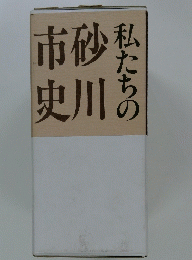 私たちの
砂川
市史